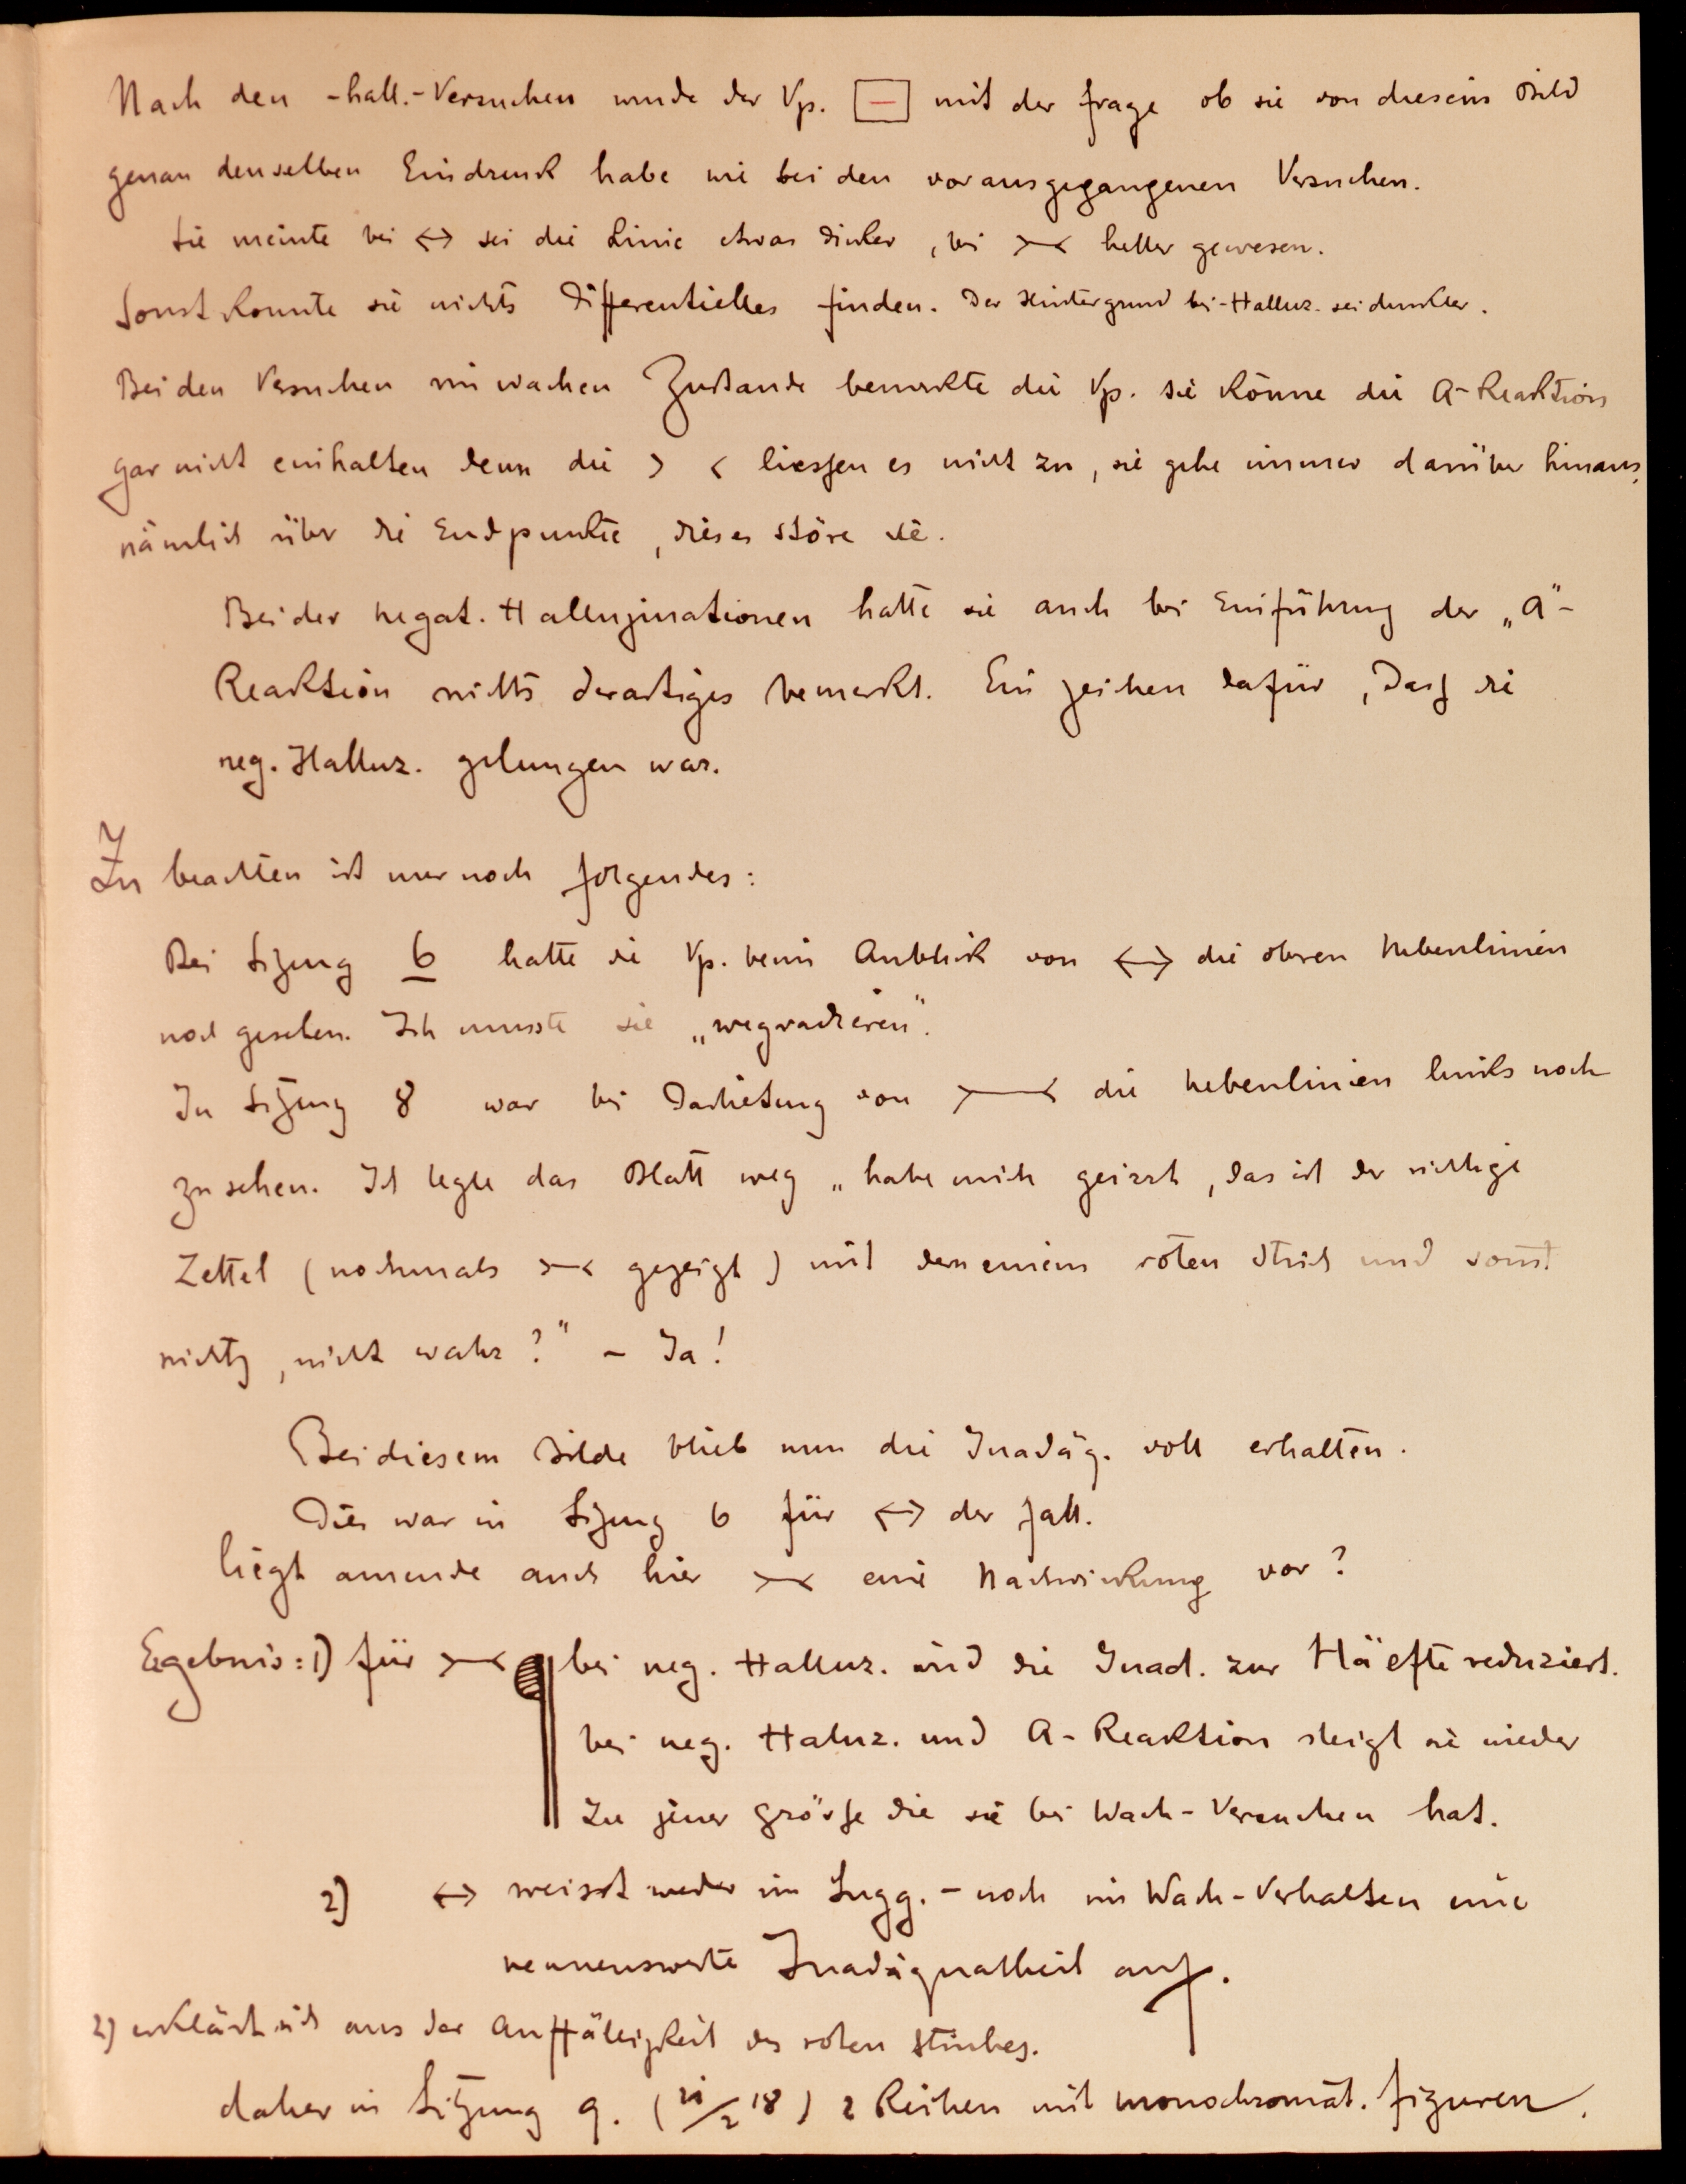 Nach den -hall.-Versuchen wurde der Vp. [—] mit der Frage ob sie von diesem Bild
genau denselben Eindruck habe wie bei den vorausgegangenen Versuchen.
Sie meinte bei <-> sei die Linie etwas dicker, bei >-< heller gewesen.
Sonst konnte sie nichts Differentielles finden. Der Hintergrund bei -Halluz. sei dunkler.
Bei den Versuchen im wachen Zustande bemerkte die Vp. sie könne die A-Reaktion
gar nicht einhalten denn die > < liessen es nicht zu, sie gehe immer darüber hinaus,
nämlich über die Endpunkte, dieses störe sie.
Bei der negat. Halluzinationen hatte sie auch bei Einführung der „A"-
Reaktion nichts derartiges bemerkt. Ein Zeichen dafür, dass die
neg. Halluz. gelungen war.
Zu beachten ist nur noch folgendes:
Bei Sitzung 6 hatte die Vp. beim Anblick von <-> die oberen Nebenlinien
noch gesehen. Ich musste sie „wegradieren".
In Sitzung 8 war bei Darbietung von >-< die Nebenlinien links noch
zu sehen. Ich legte das Blatt weg „habe mich geirrt, das ist der richtige
Zettel (nochmals >-< gezeigt) mit dem einem roten Strich und sonst
nichts, nicht wahr?" – Ja!
Bei diesem Bilde blieb nun die Inadäq. voll erhalten.
Dies war in Sitzung 6 für <-> der Fall.
Liegt amende auch hier >-< eine Nachwirkung vor?
Ergebnis: 1) für >-< bei neg. Halluz. wird die Inad. zur Häefte reduziert.
bei neg. Haluz. und A-Reaktion steigt sie wieder
zu jener Grösse die sie bei Wach-Versuchen hat.
2) <-> weisst weder im Sugg.- noch im Wach-Verhalten eine
nennenswerte Inadäquatheit auf.
2) erklärt sich aus der Auffälligkeit des roten Striches.
daher in Sitzung 9. ( /2 18) 2 Reihen mit monochromat. Figuren.